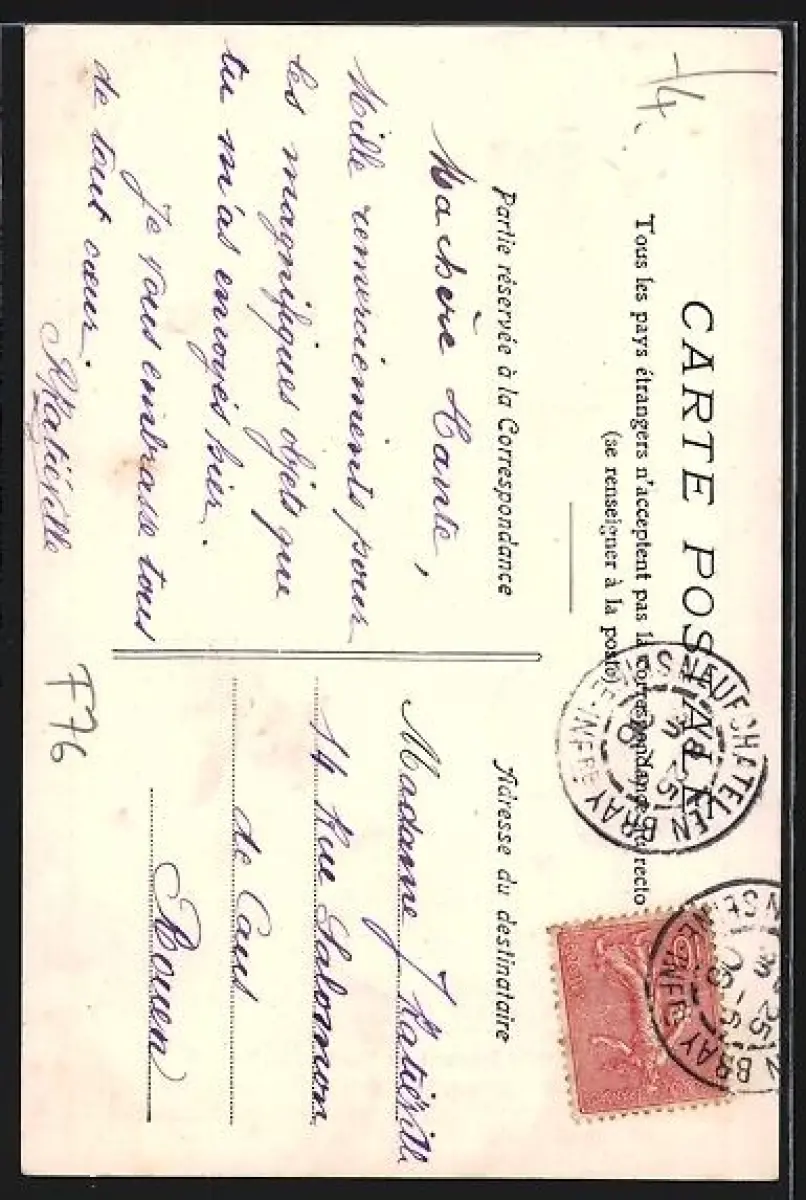 CARTE POSTALE
Tous les pays étrangers n'acceptent pas la correspondance au recto
(se renseigner à la poste)
Partie réservée à la Correspondance
Ma chère Tante,
Mille remerciements pour
les magnifiques objets que
tu m'as envoyés hier.
Je vous embrasse tous
de tout cœur.
Adresse du destinataire
Madame J
14 Rue Salomon
de Caus
Rouen
NEUFCHATEL EN BRAY
SNE-INFRE
BRAY
INFRE
F76
14.